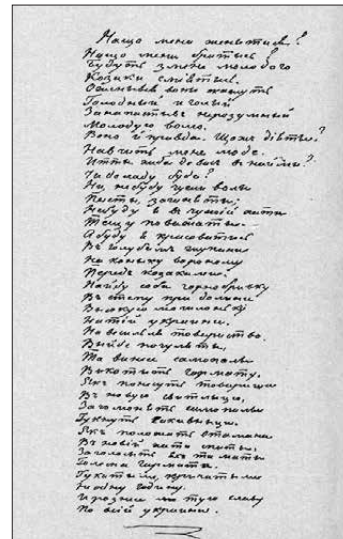 Нащо мени женытися?
Нащо мени братысь?
Будуть з мене молодого
Козакы сміятысь.
Оженывсь воны кажуть
Голодный и голый
Занапастывъ нерозумный
Молодую волю.
Воно й правда. Щожъ діять?
Навчить мене люде.
Итты хиба до васъ въ наймы?
Ни, небуду чужи волы
Пасты, заганяты;
Небуду я въ чужій хати
Тещу поважаты.
А буду я красоватысь
Въ голубимъ жупани
На коныку вороному
Передъ козакамы.
Найду соби чорнобрывку
Въ степу при долыни
Высокую могылоньку
На тій украини.
На весильля товарыство
Выйде погуляты,
Та вынесе самопалы
Выкотыть гармату.
Якъ понесуть товарыша
Въ новую свитлыцю,
Загомонять самопалы
Гукнуть гакивныци.
Якъ положать отамана
Въ новій хати спаты,
Заголосыть якъ та маты
Голосна гармата.
Гукатыме, крычатыме
Не одну годыну.
И рознесе тую славу
По всій украини.